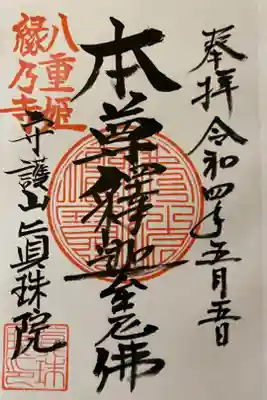 奉拝 令和四年五月五日
本尊釋迦牟尼佛
八重姫
縁乃寺
守護山 眞珠院